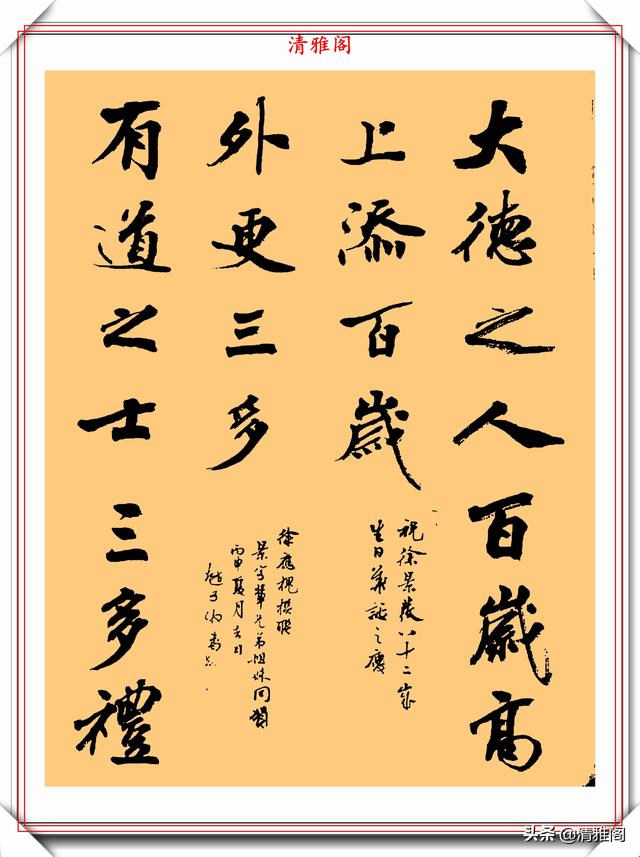 清雅阁
大德之人百歲高
上添百歲
祝徐景八十二歲
生日華誕之慶
有道之士三多禮
外更三多
徐應槐撰聯
景字輩兄弟姐妹同賀
丙申夏月吉日
趙子書
头条@清雅阁